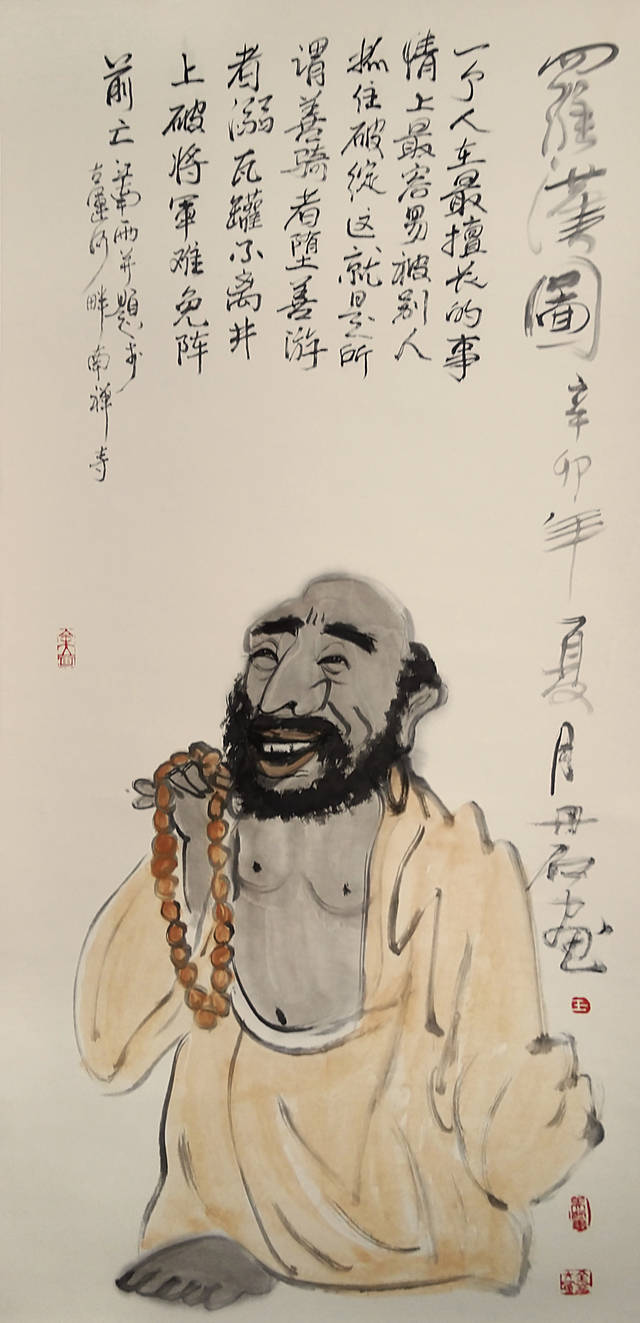 羅漢圖 辛卯年夏月丹石画
一个人在最擅长的事
情上最容易被别人
抓住破绽这就是所
谓善骑者堕善游
者溺瓦罐不离井
上破将军难免阵
前亡
古运河畔南禅寺